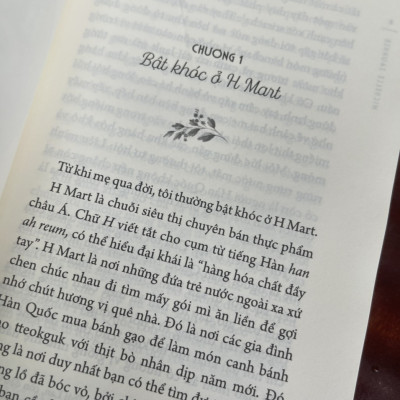 CHƯƠNG 1
Bật khóc ở H Mart
Từ khi mẹ qua đời, tôi thường bật khóc ở H Mart.
H Mart là chuỗi siêu thị chuyên bán thực phẩm
châu Á. Chữ H viết tắt cho cụm từ tiếng Hàn han
ah reum, có thể hiểu đại khái là “hàng hóa chất đầy
tay”. H Mart là nơi những đứa trẻ nước ngoài xa xứ
chen chúc nhau đi tìm mấy gói mì ăn liền để gợi
nhớ chút hương vị quê nhà. Đó là nơi các gia đình
Hàn Quốc mua bánh gạo để làm món canh bánh
tteokguk với thịt bò nhân dịp năm mới. Đó
là nơi duy nhất bạn có thể tìm được
lồ đã bóc vỏ, bởi